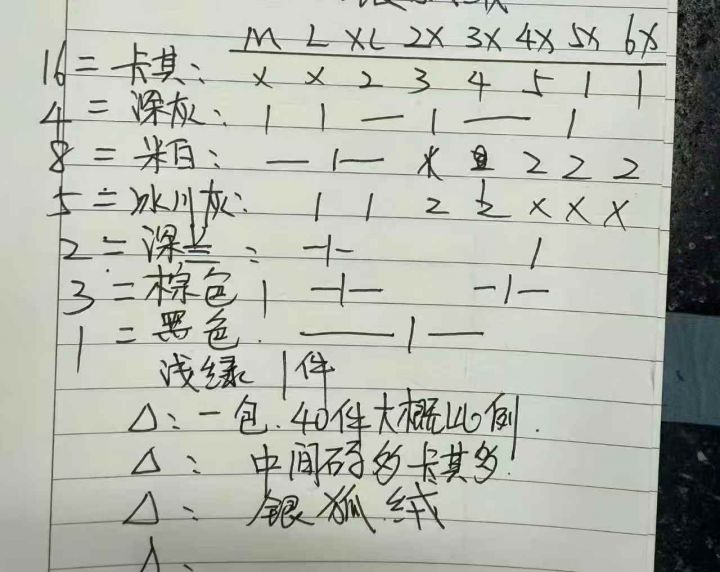 M L XL 2X 3X 4X 5X 6X
16 = 卡其: x x 2 3 4 5 1 1
4 = 深灰: 1 1 — 1 — 1
8 = 米白: — 1 — x 1 2 2 2
5 = 冰川灰: 1 1 2 1 x x x
2 = 深兰: -1- 1
3 = 棕色 1 -1- -1-
1 = 黑色. — 1 —
浅绿 1件
△: 一包. 40件大概比例.
△: 中间码多卡其多.
△: 银狐绒
△: